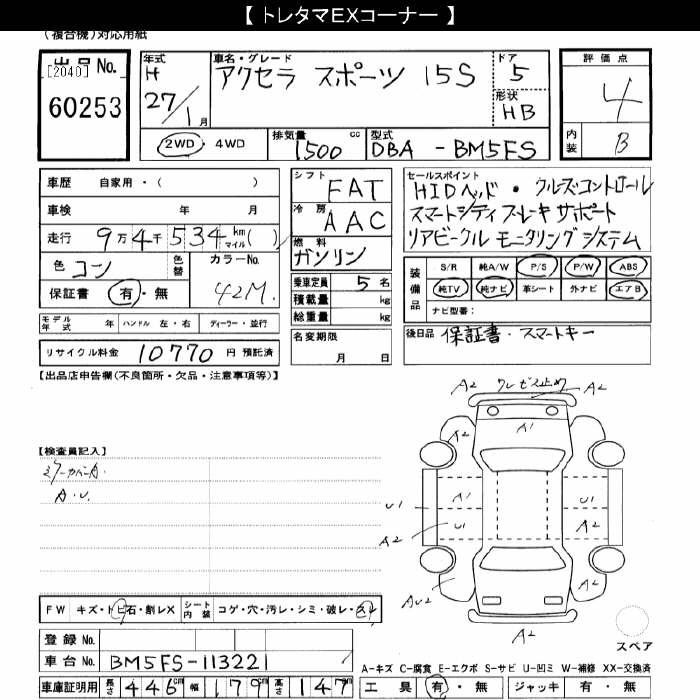 【 トレタマEXコーナー 】
(複合機)対応用紙
出品No.
[2040]
60253
年式
H
27/1月
車名・グレード
アクセラ スポーツ 15S
ドア
5
形状
HB
評価点
4
内装
B
2WD・4WD
排気量
1500 cc
型式
DBA - BM5FS
車歴 自家用・( )
車検 年 月
走行 9万4千534 km マイル( )
色 コン 色替 カラーNo. 42M.
保証書 有・無
シフト FAT
冷房 AAC
燃料 ガソリン
乗車定員 5名
積載量 kg
総重量 kg
名変期限
月 日
セールスポイント
HIDヘッド ・ クルーズコントロール
スマートシティブレーキサポート
リアビークル モニタリングシステム
装備品
S/R 純A/W P/S P/W ABS
純TV 純ナビ 革シート 外ナビ エアB
ナビ型番:
後日品 保証書・スマートキー
モデル年式 年 ハンドル 左・右 ディーラー・並行
リサイクル料金 10770 円 預託済
【出品店申告欄(不良箇所・欠品・注意事項等)】
A2 A2
A2 A1 A2
【検査員記入】
ミラーカバーA.
A・U.
U1 A1 U1
A2 U1 A2
AU2 A2
A2
FW キズ・トビ石・割レX シート内装 コゲ・穴・汚レ・シミ・破レ・スレ
スペア
登録 No.
車台 No. BM5FS-113221
A-キズ C-腐食 E-エクボ S-サビ U-凹ミ W-補修 XX-交換済
車庫証明用 長さ 446cm 幅 179cm 高さ 147cm
工具 有・無 ジャッキ 有・無